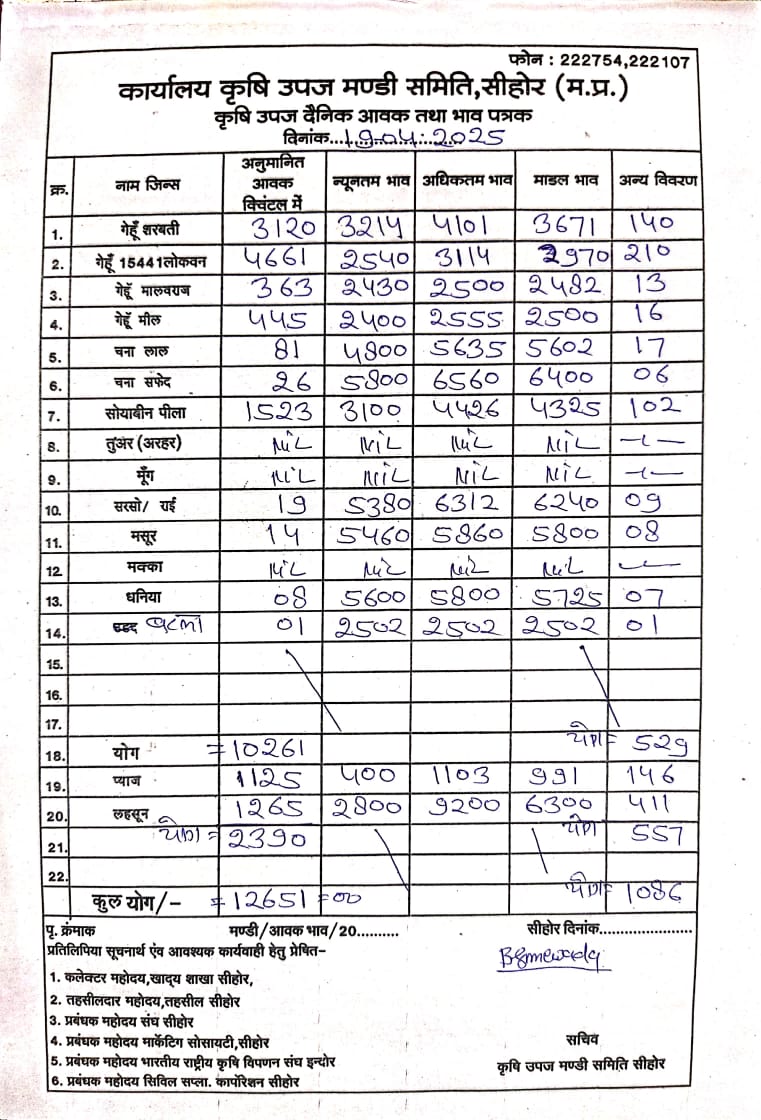 फोन : 222754,222107
कार्यालय कृषि उपज मण्डी समिति,सीहोर (म.प्र.)
कृषि उपज दैनिक आवक तथा भाव पत्रक
दिनांक...19.04.2025
क्र. नाम जिन्स अनुमानित आवक क्विंटल में न्यूनतम भाव अधिकतम भाव माडल भाव अन्य विवरण
1. गेहूँ शरबती 3120 3214 4101 3671 140
2. गेहूँ 15441लोकवन 4661 2540 3114 2970 210
3. गेहूँ मालवराज 363 2430 2500 2482 13
4. गेहूँ मील 445 2400 2555 2500 16
5. चना लाल 81 4800 5635 5602 17
6. चना सफेद 26 5800 6560 6400 06
7. सोयाबीन पीला 1523 3100 4426 4325 102
8. तुअर (अरहर) NIL NIL NIL NIL —
9. मूँग NIL NIL NIL NIL —
10. सरसो/ राई 19 5380 6312 6240 09
11. मसूर 14 5460 5860 5800 08
12. मक्का NIL NIL NIL NIL —
13. धनिया 08 5600 5800 5725 07
14. बटला 01 2502 2502 2502 01
15.
16.
17.
18. योग =10261 योग= 529
19. प्याज 1125 400 1103 991 146
20. लहसून 1265 2800 9200 6300 411
21. योग= 2390 योग 557
22.
कुल योग/- =12651=00 योग= 1086
पृ. क्रंमाक मण्डी/आवक भाव/20.......... सीहोर दिनांक.......................
प्रतिलिपिया सूचनार्थ एंव आवश्यक कार्यवाही हेतु प्रेषित-
1. कलेक्टर महोदय,खाद्य शाखा सीहोर,
2. तहसीलदार महोदय,तहसील सीहोर
3. प्रबंधक महोदय संघ सीहोर
4. प्रबंधक महोदय मार्केटिग सोसायटी,सीहोर
5. प्रबंधक महोदय भारतीय राष्ट्रीय कृषि विपणन संघ इन्दोर
6. प्रबंधक महोदय सिविल सप्ला. कार्पोरेशन सीहोर
सचिव
कृषि उपज मण्डी समिति सीहोर